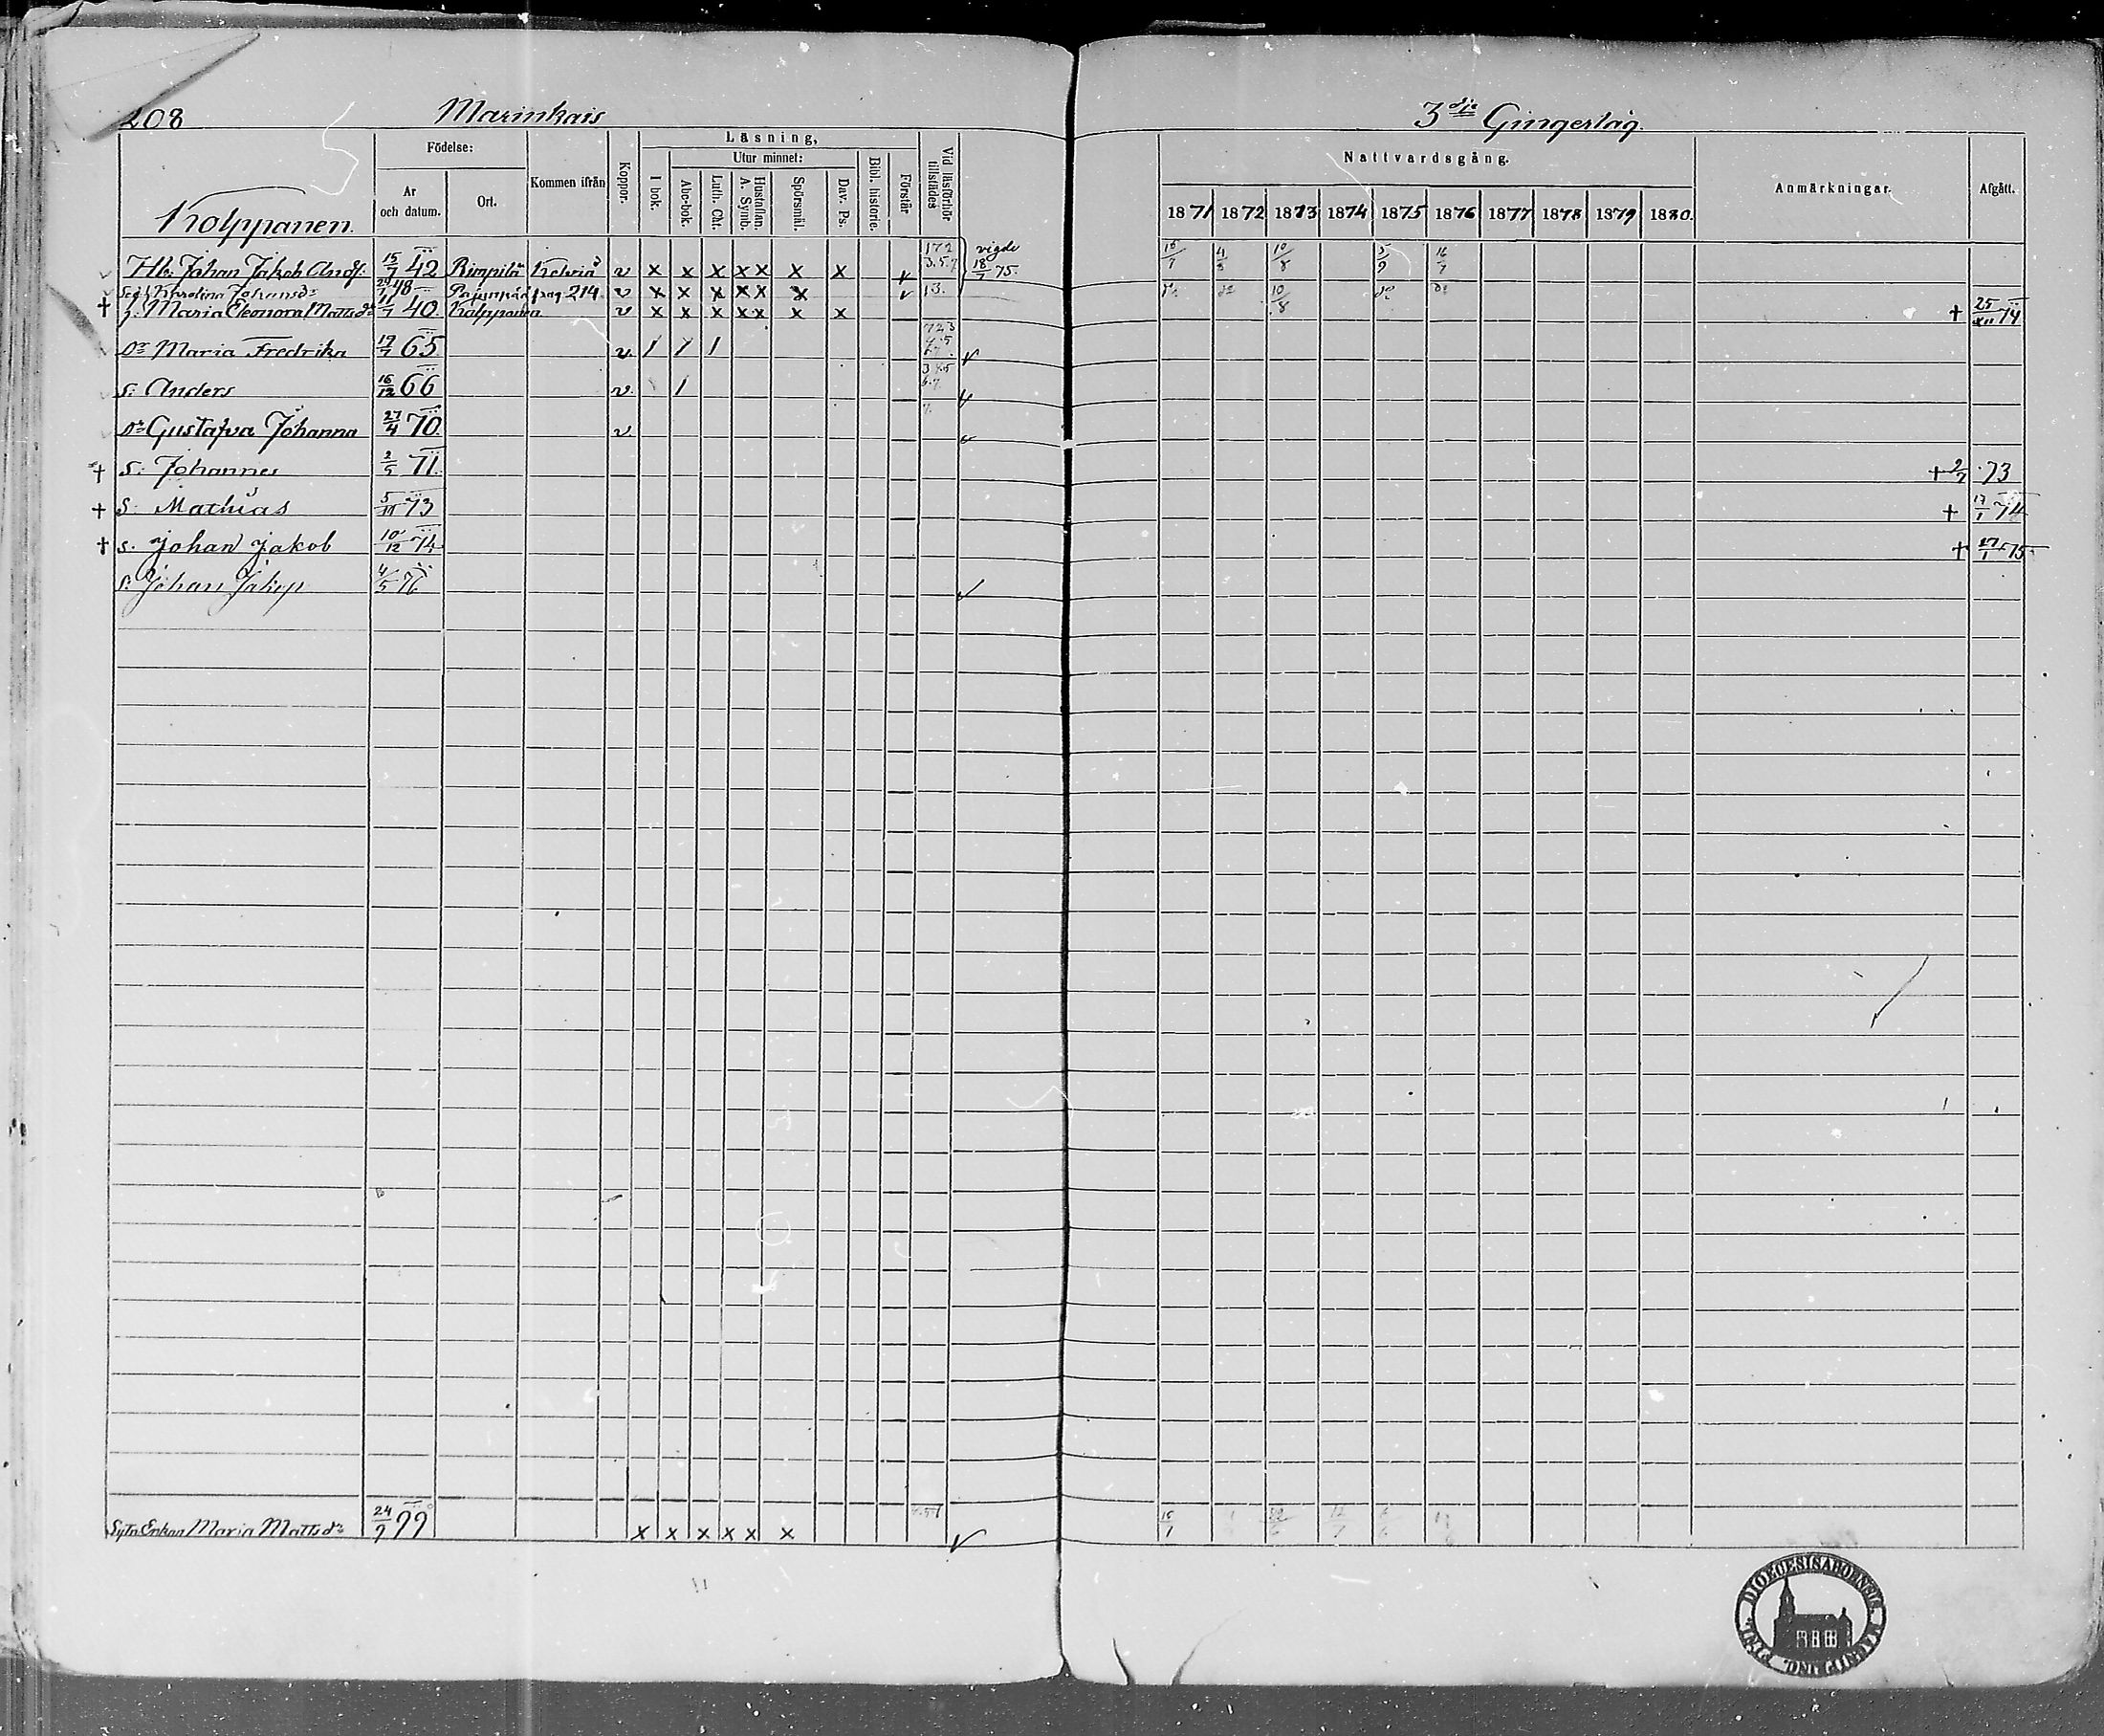 208 Marinkais 3die Gingerlåg.
Kolppanen.
Födelse:
År och datum.
Ort.
Kommen ifrån
Koppor.
Läsning,
I bok.
Utur minnet:
Abc-bok.
Luth. Cht.
Hustaflan. A. Symb.
Spörsmål.
Dav. Ps.
Bibl. historie.
Förstår
Vid läsförhör tillstädes
Nattvardsgång.
1871 1872 1873 1874 1875 1876 1877 1878 1879 1880.
Anmärkningar.
Afgått.
Hb: Johan Jakob Andsf: 15/7 42 Rimpilä Kelviå v x x x x x x x 172 3.5.7 vigde 18/7 75. 15/7 4/8 10/8 5/9 16/7
Karolina Johansdr 48 pag 214 v x x x x x x 13.
† h. Maria Eleonora Mattsdr 11/7 40. Kolppanen v x x x x x x x 10/8 † 25/XII 74
Dr Maria Fredrika 17/7 65 v. / / /
S: Anders 16/12 66 v. /
Dr Gustafva Johanna 27/4 70. v.
† S: Johannes 2/5 71. † 2/7 73
† S: Mathias 5/11 73 † 17/1 74
† S. Johan Jakob 10/12 74 † 27/1 75
S: Johan Jakop 4/5 76
Sytn Enkan Maria Mattsdr 24/7 99 x x x x x x 15/7
DIOECESIS ABOENSIS